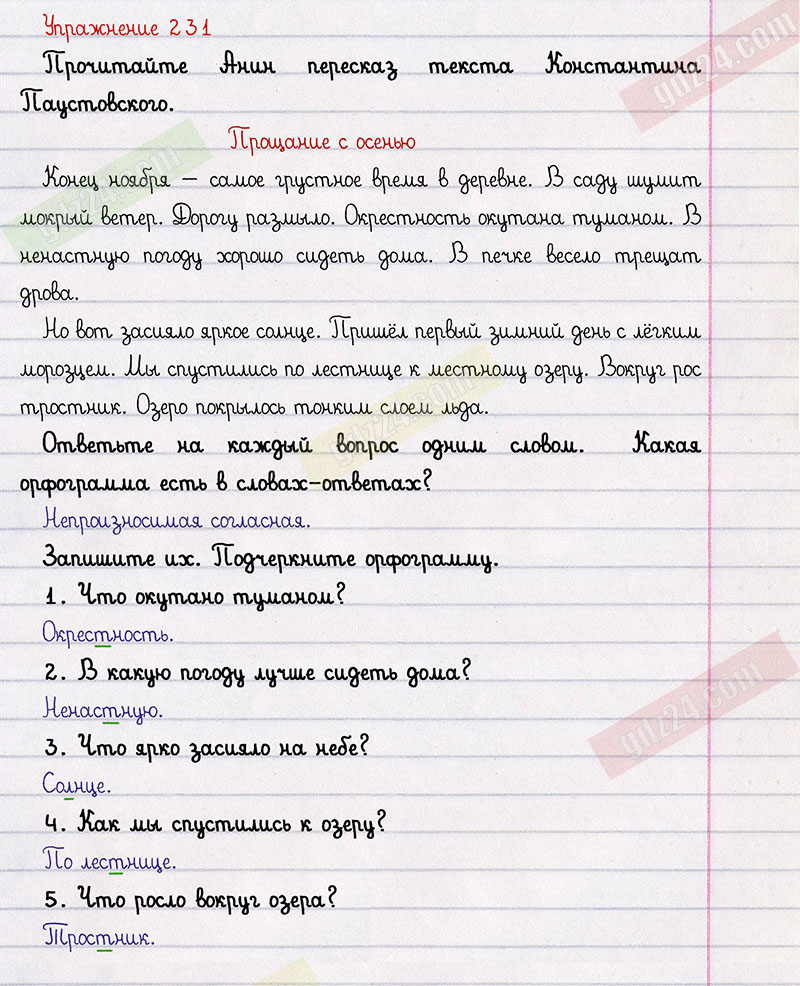 Упражнение 231
Прочитайте Анин пересказ текста Константина
Паустовского.
Прощание с осенью
Конец ноября – самое грустное время в деревне. В саду шумит
мокрый ветер. Дорогу размыло. Окрестность окутана туманом. В
ненастную погоду хорошо сидеть дома. В печке весело трещат
дрова.
Но вот засияло яркое солнце. Пришёл первый зимний день с лёгким
морозцем. Мы спустились по лестнице к местному озеру. Вокруг рос
тростник. Озеро покрылось тонким слоем льда.
Ответьте на каждый вопрос одним словом. Какая
орфограмма есть в словах-ответах?
Непроизносимая согласная.
Запишите их. Подчеркните орфограмму.
1. Что окутано туманом?
Окрестность.
2. В какую погоду лучше сидеть дома?
Ненастную.
3. Что ярко засияло на небе?
Солнце.
4. Как мы спустились к озеру?
По лестнице.
5. Что росло вокруг озера?
Тростник.
gdz24.com
gdz24.com
gdz24.com
gdz24.com